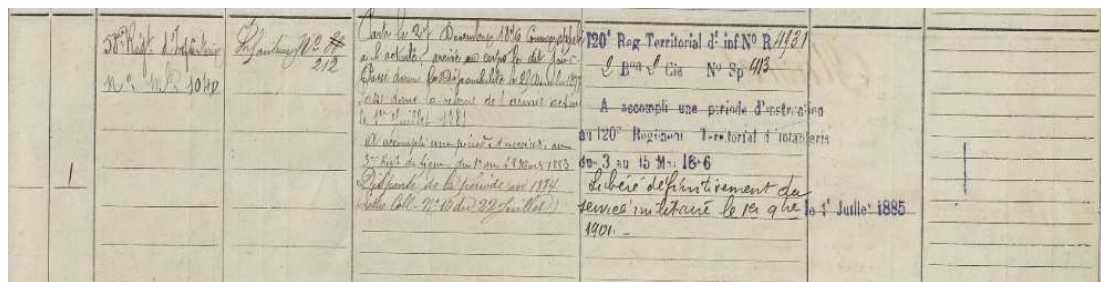 1
58e Régt d'Infanterie
No Mle 1040
Infanterie No 84
212
Parti le 27 Décembre 1876 comme appelé
à l'activité, arrivé au corps le dit jour
Passé dans la disponibilité le
Passé dans la réserve de l'armée active
le 1er Juillet 1881
A accompli une période d'exercices, au
3me Régt de ligne, du 1er au 28 1883
Dispensé de la période en 1884
Lettre Coll. No 10 du 22 Juillet
120e Reg Territorial d'inf No R 4431
2 Bon 2 Cie No Sp 413
A accompli une période d'instruction
au 120e Regiment Territorial d'infanterie
du 3 au 15 Mai 1886
Libéré définitivement du
service militaire le 1er
1901.
le 1er Juillet 1885